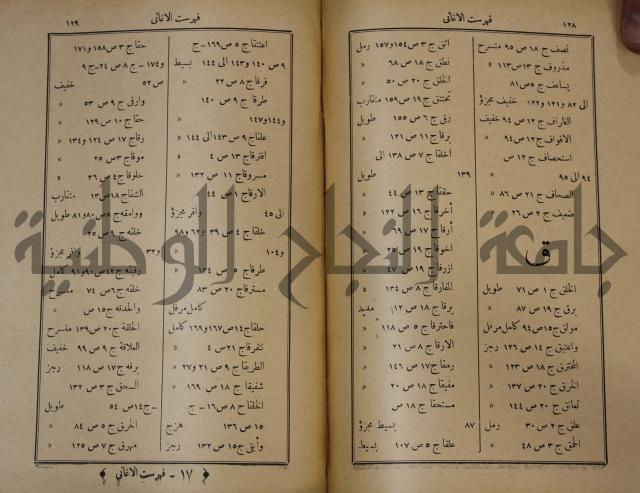 ١٢٨
فهرست الاغانى
نصف ج ١٨ ص ٩٥ منسرح
مذروف ج ١٣ ص ١١٣ »
يساعف ج ٥ ص ٨١
الى ٨٢ و ١٢١ و ١٢٢ خفيف مجزؤ
القاراف ج ١٢ ص ٩٤ خفيف
الاقواف ج ١٢ ص ٩٤ »
استحصاف ج ١٢ ص
٩٤ الى ٩٥ »
الصحاف ج ٢١ ص ٨٦ »
ضعيف ج ٢ ص ٢٦ »
ق
الخلق ج ١ ص ٧١ طويل
برق ج ١٩ ص ٨٧ »
موثق ج ١٥ ص ٩٤ كامل مرفل
واعتنق ج ١٤ ص ١٢٦ رجز
المخترق ج ١٨ ص ١٢٣ »
الخرق ج ٢٠ ص ١٣٧ »
تعانق ج ٢٠ ص ١٤٤ »
علق ج ٢ ص ٣٠ رمل
الحمق ج ٣ ص ٤٨ »
اتق ج ٣ ص ١٥٤ و ١٥٧ رمل
نطق ج ١٨ ص ٦٨ »
الخلق ج ٢٠ ص ٥٠ »
تختنق ج ١٩ ص ١٥٩ متقارب
رق ج ٦ ص ١٥٥ طويل
برقا ج ١١ ص ١٢١ »
اخلقا ج ٧ ص ١٣٨ الى
١٣٩ طويل
حققا ج ١٣ ص ٤٤ »
أخرقا ج ١٦ ص ١٢٢ »
أرقا ج ١٧ ص ٦٩ »
اخوقا ج ١٩ ص ٢٥ »
ازرقا ج ١٩ ص ٤٧ »
المفارقا ج ٨ ص ١٣٤ »
برقا ج ١٨ ص ١٢ مديد
فاحترقا ج ٥ ص ١١٨ »
الارقا ج ٨ ص ٢١ »
رمقا ج ١٧ ص ١٤٦ »
مفيقا ج ١٨ ص ٢٠ »
مستحقا ج ١٨ ص
٨٧ بسيط مجزؤ
علقا ج ٥ ص ١٠٧ بسيط
فهرست الاغانى
١٢٩
اعتنقا ج ٥ ص ١٦٩ ـ ج
٩ ص ١٤٠ و ١٤٣ الى ١٤٤ بسيط
فرقا ج ٨ ص ٢٢ »
طرقا ج ٩ ص ١٤٠
و ١٤٤ و ١٤٧ »
علقا ج ٩ ص ١٤٣ الى ١٤٤ »
افترقا ج ١٣ ص ٤ »
مسروقا ج ١١ ص ١٣٢ »
الارقا ج ١ ص ٤٤
الى ٤٥ وافر مجزؤ
خلقا ج ٤ ص ٣٩ و ٦٢ و ٩٨
و ١٠٤ »
طرقا ج ٥ ص ١٣٤ »
مسترقا ج ٢٠ ص ٨٣
كامل مرفل
حلقا ج ١٤ ص ١٦٧ و ١٦٩ كامل
تتفرقا ج ٢١ ص ٤ »
الطريقا ج ٩ ص ٢١ و ٢٧ »
شفيقا ج ١٨ ص ١٦٩ »
الخلقا ج ٨ ص ١٦ ـ ج
١٥ ص ١٣٦ هزج
وأبق ج ١٥ ص ١٣٢ رجز
حقا ج ٣ ص ١٥٨ و ١٧١
و ١٧٤ ـ ج ٨ ص ٢٤ ـ ج ٩
ص ٥٢ خفيف
وارق ج ٩ ص ٥٣ »
حقا ج ١٠ ص ١٢٩ »
رقا ج ١٧ ص ١٢٤ و ١٣٤ »
موقا ج ٣ ص ٢٥ »
خلوقا ج ٤ ص ٣٦ »
الشتقا ج ١٨ ص ١٣ متقارب
ووامقه ج ٨ ص ٨٠ و ٨١ طويل
خلقه ج ٩ ص ٢٥
و ٣٢ وافر مجزؤ
وقينه ج ١٢ ص ٩٠ و ٩١ كامل
خلقه ج ٦ ص ٧٤ منسرح
والحدقه ج ١٥ ص »
الحلقة ج ٢٠ ص ١٣٩ منسرح
العلاقة ج ٩ ص ٩٩ خفيف
برقه ج ١٧ ص ١١٨ رجز
السحق ج ٣ ص ١٣٢
ـ ج ١٤ ص ٥٤ طويل
الخرق ج ٥ ص ٨٤ »
مهرق ج ٧ ص ١٢٥ »
١٧ ـ فهرست الاغانى
جامعة النجاح الوطنية